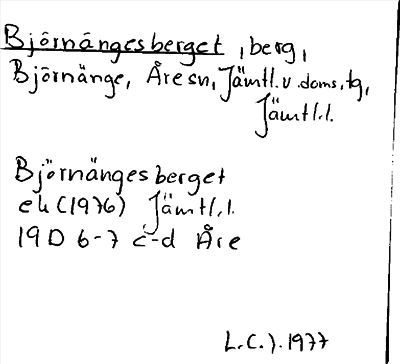 Björnängesberget, berg,
Björnänge, Åre sn, Jämtl. v. doms. tg,
Jämtl. l.
Björnängesberget
ek (1976) Jämtl. l.
19D 6-7 c-d Åre
L.C.J. 1977